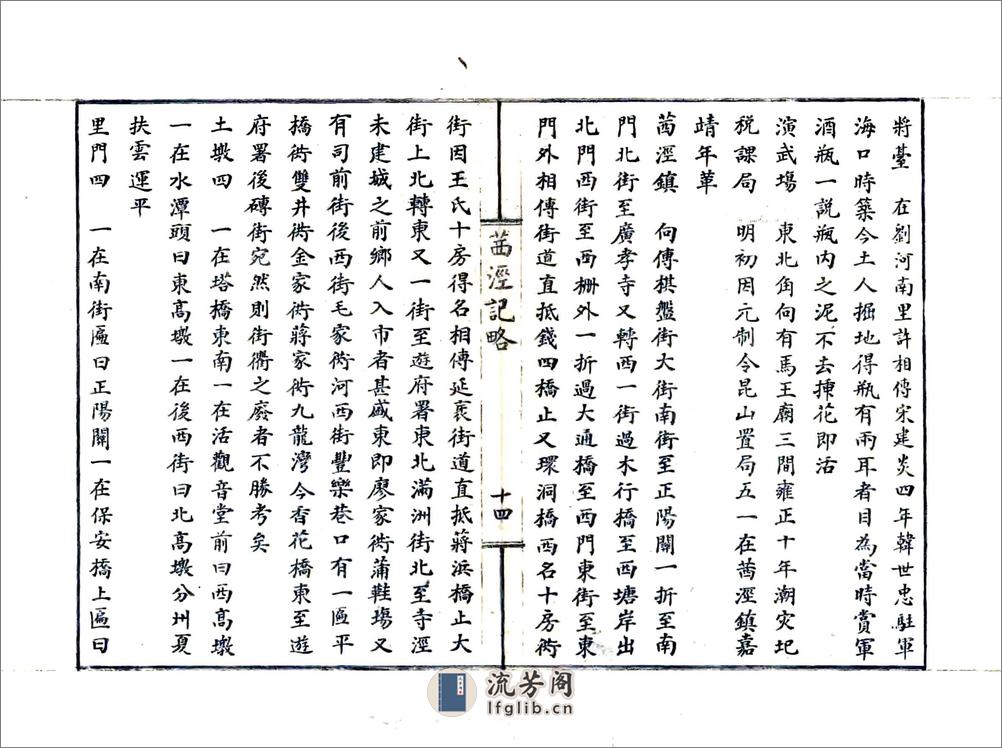 將臺　在劉河南里許相傳宋建炎四年韓世忠駐軍
海口時築今土人掘地得瓶有兩耳者目為當時賞軍
酒瓶一說瓶内之泥不去揀花即活
演武塲　東北角向有馬王廟三間雍正十年潮灾圮
税課局　明初因元制令昆山置局五一在茜涇鎮嘉
靖年革
茜涇鎮　向傳棋盤街大街南街至正陽關一折至南
門北街至廣孝寺又轉西一街過木行橋至西塘岸出
北門西街至西栅外一折過大通橋至西門東街至東
門外相傳街道直抵錢四橋止又環洞橋西名十房衖
街因王氏十房得名相傳延袤街道直抵蔣浜橋止大
街上北轉東又一街至遊府署東北滿洲街北至寺涇
未建城之前鄉人入市者甚盛東即廖家衖蒲鞋塲又
有司前街後西街毛家衖河西街豐樂巷口有一區平
橋衖雙井衖金家衖蔣家衖九龍灣今香花橋東至遊
府署後磚街宛然則街衢之廢者不勝考矣
土墩四　一在塔橋東南一在活觀音堂前曰西髙墩
一在水潭頭曰東髙墩一在後西街曰北髙墩分州夏
扶雲運平
里門四　一在南街區曰正陽關一在保安橋上區曰
茜涇記略
十四
流芳阁
lfglib.cn